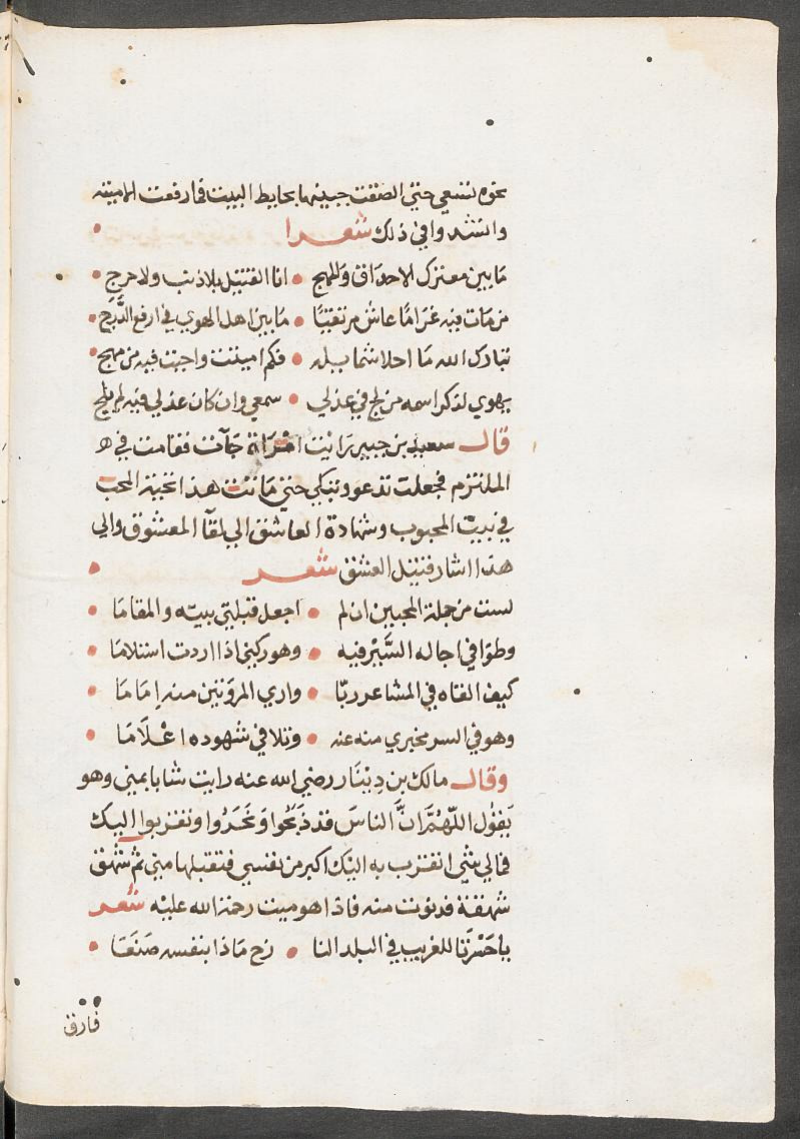 نحوه تسعي حتي الصقت جبينها بحايط البيت فما رفعت الا ميته
وانشدوا في ذلك شعرا
مَا بين معترك الاحداق وَالمهج • انا القتيل بلا ذنب ولا حرج •
من مَات فيه غرامًا عاش مرتقيًا • مَا بين اهل الهوي في ارفع الدَّرَج •
تبارك الله مَا احلا شمايله • فكم اميتت واحيت فيه من مهج •
يهوي لذكر اسمه من لج في عذلي • سمعي وان كان عذلي فيه لم يلج
قال سعيد بن جبير رَايت امْرَاة جَآت فقامت في
الملتزم فجعلت تدعو وتبكي حتي مَاتت هذا تحية المحب
في بيت المحبوب وشهادة العاشق الي لقآ المعشوق والي
هذا اشار قتيل العشق شعر •
لست من جملة المحبين ان لم • اجعل قبلتي بيته والمقامَا •
وطوافي اجاله السَّيْر فيه • وهو ركني اذا اردت استلامَا •
كيف القاه في المشاعر ربًا • واري المروتين منه اِمَامَا •
وهو في السر مخبري منه عنه • وتلافي شهوده اعْلَامَا •
وقال مالك بن دِيْنَار رضي الله عنه رايت شابا بمني وهو
يَقول اللّهُمَّ انَّ الناسَ قد ذَبَحُوا وَنَحَرُوا وتقربوا اليك
فمالي شي اتقرب به اليَك اكبر من نفسي فتقبلها مني ثم شهق
شهقة فدنوت منه فاذا هو ميت رحمة الله عليْه شعر
ياحَسْرَتَا للغريب في البلد النا • زح مَاذا بنفسه صَنَعَا •
فارق